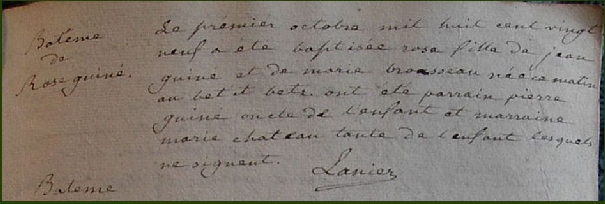 Bateme
de
Rose guiné.
Le premier octobre mil huit cent vingt
neuf a ete baptisée rosa fille de jean
guine et de marie brousseau née ce matin
ont ete parrain pierre
guine oncle de l'enfant et marraine
marie chateau tante de l'enfant lesquels
ne signent.
Lanier
Bateme